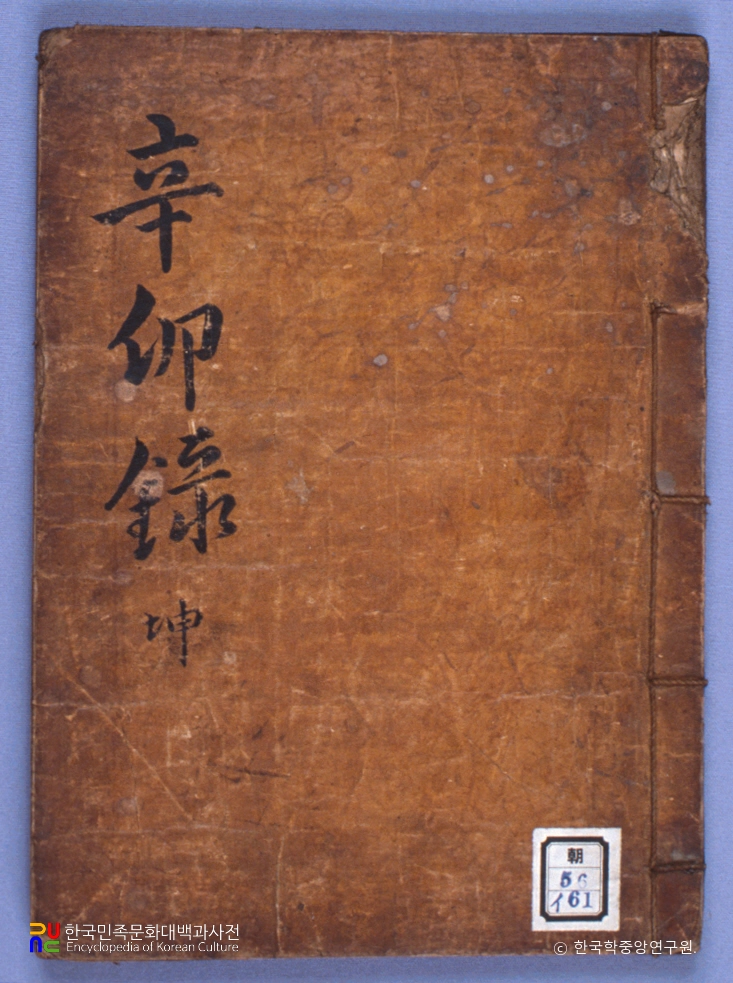 辛卯錄 坤
朝
56
イ61
한국민족문화대백과사전
Encyclopedia of Korean Culture
© 한국학중앙연구원.